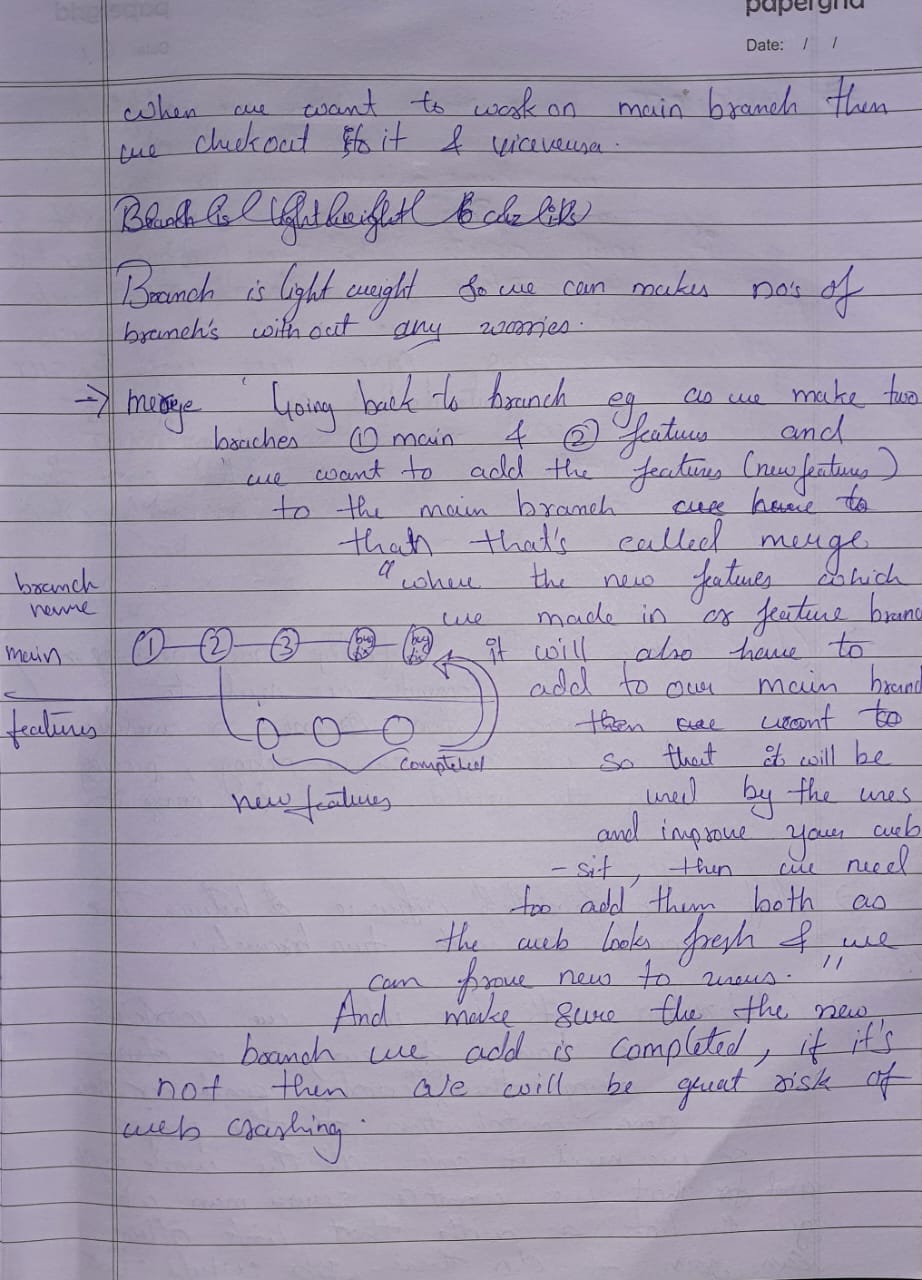 papergrid
Date: / /
when we want to work on main branch then
we checkout to it & viceversa.
Branch is light weight
Branch is light weight so we can makes no's of
branch's without any worries.
→ merge Going back to branch eg as we make two
braches ① main & ② features and
we want to add the features (new features)
to the main branch have to
that's called merge
"where the new features which
we made in or feature branc
it will also have to
add to our main branc
then we want to
so that it will be
used by the uses
and improve your web
- sit, then we need
too add them both as
the web looks fresh & we
can prove new to users."
And make sure the the new
branch we add is completed, if it's
not then we will be great risk of
web crashing.
branch
name
main ① ② ③ bug fix bug fix
features
completed
new features